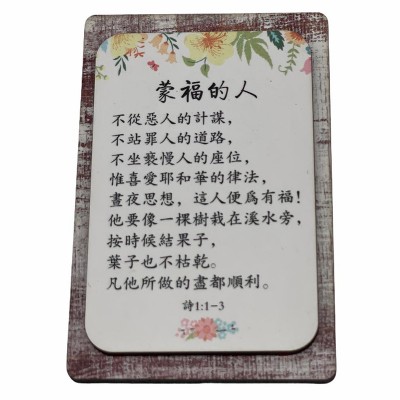 蒙福的人
不從惡人的計謀，
不站罪人的道路，
不坐褻慢人的座位，
惟喜愛耶和華的律法，
晝夜思想，這人便為有福！
他要像一棵樹栽在溪水旁，
按時候結果子，
葉子也不枯乾。
凡他所做的盡都順利。
詩1:1-3